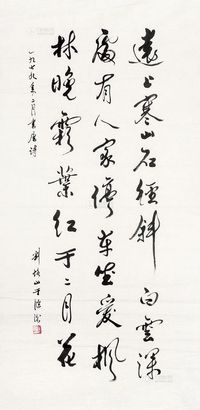 遠上寒山石徑斜 白雲深
處有人家停車坐愛楓
林晚霜葉紅于二月花
一九七九 二月書唐詩